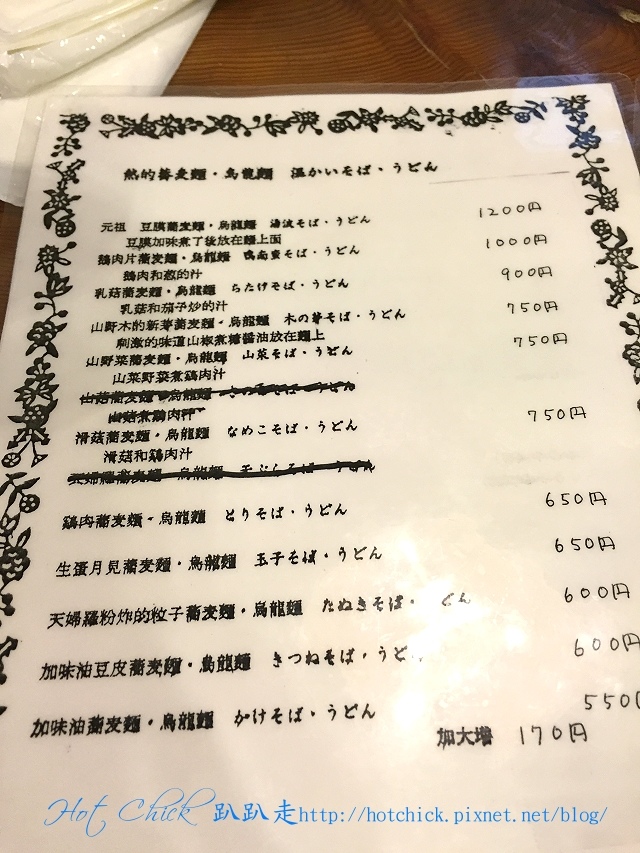 熱的蕎麦麵・烏龍麵 温かいそば・うどん
元祖 豆膜蕎麦麵・烏龍麵 湯波そば・うどん 1200円
豆膜加味煮了後放在麵上面
鶏肉片蕎麦麵・烏龍麵 鴨南蛮そば・うどん 1000円
鶏肉和葱的汁
乳菇蕎麦麵・烏龍麵 ちたけそば・うどん 900円
乳菇和茄子炒的汁
山野木的新芽蕎麦麵・烏龍麵 木の芽そば・うどん 750円
刺激的味道山椒煮糖醤油放在麵上
山野菜蕎麦麵・烏龍麵 山菜そば・うどん 750円
山菜野菜煮鶏肉汁
山菇蕎麦麵・烏龍麵 きのこそば・うどん
山菇煮鶏肉汁
滑菇蕎麦麵・烏龍麵 なめこそば・うどん 750円
滑菇和鶏肉汁
天婦羅蕎麦麵・烏龍麵 天ぷらそば・うどん
鶏肉蕎麦麵・烏龍麵 とりそば・うどん 650円
生蛋月見蕎麦麵・烏龍麵 玉子そば・うどん 650円
天婦羅粉炸的粒子蕎麦麵・烏龍麵 たぬきそば・ どん 600円
加味油豆皮蕎麦麵・烏龍麵 きつねそば・うど 600円
加味油蕎麦麵・烏龍麵 かけそば・うどん 550円
加大増 170円
Hot Chick 趴趴走http://hotchick.pixnet.net/blog/